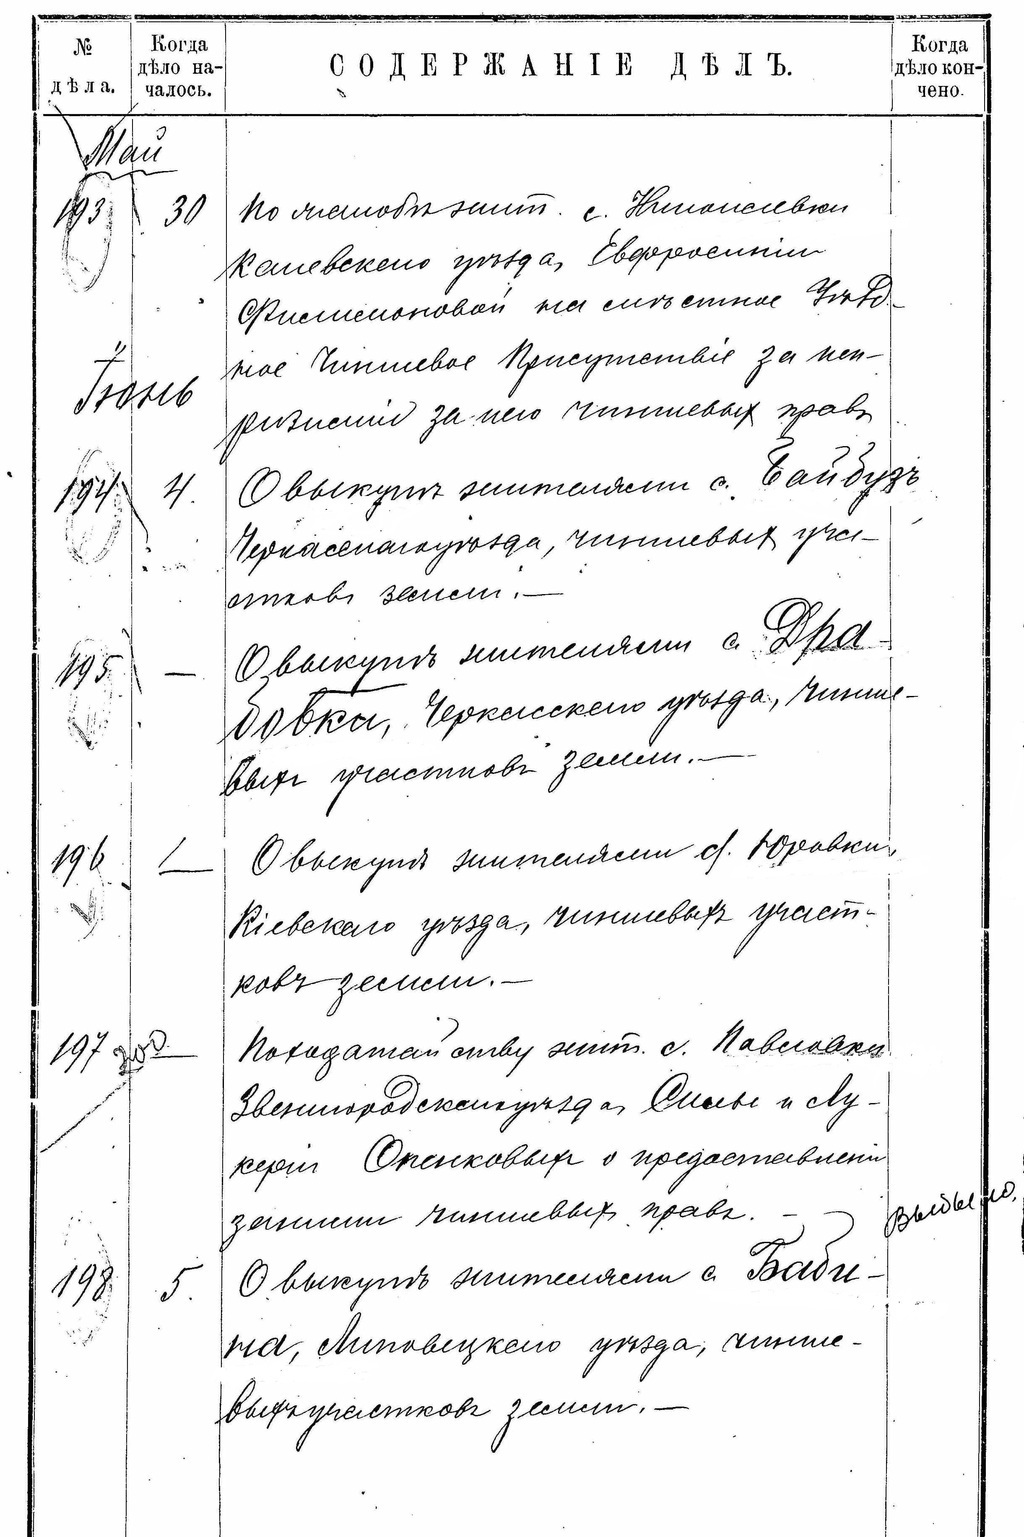 № дѣла.
Когда дѣло началось.
СОДЕРЖАНІЕ ДѢЛЪ.
Когда дѣло кончено.
Май
193 30 По жалобѣ жит. с.
Каневскаго уѣзда, Евфросиніи
Филимоновой на мѣстное Уѣзд-
ное Чиншевое Присутствіе за неп-
ризнаніе за нею чиншевых правъ
Іюнь
194 4. О выкупѣ жителями с. Байбузъ
Черкасскаго уѣзда, чиншевых уча-
стковъ земли.—
195 — О выкупѣ жителями с. Дра-
бовки, Черкасскаго уѣзда, чинше-
выхъ участковъ земли.—
196 — О выкупѣ жителями с. Юровки,
Кіевскаго уѣзда, чиншевыхъ участ-
ковъ земли.—
197 — По ходатайству жит. с. Павловки
Звенигородскаго уѣзда, Силы и Лу-
керіи Опенковыхъ о предоставленіи
за ними чиншевыхъ правъ. —
Выбыло.
198 5. О выкупѣ жителями с. Баби-
на, Липовецкаго уѣзда, чинше-
выхъ участковъ земли.—